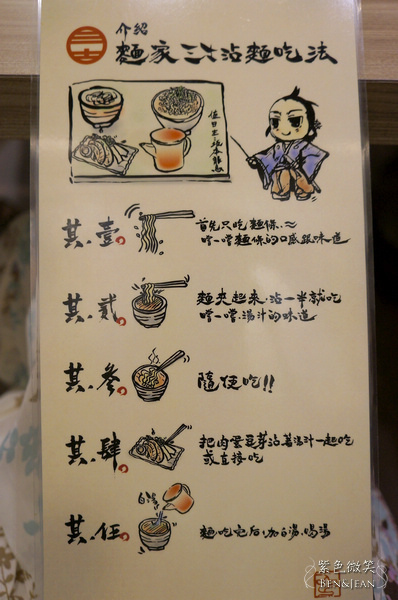 介紹
麵家三士沾麵吃法
值日生
其.壹。
首先只吃麵條、~
嚐一嚐麵條的口感跟味道
其.貳。
麵夾起來.沾一半就吃
嚐一嚐.湯汁的味道
其.參。
隨便吃!!
其.肆。
把肉.雲豆芽沾著湯汁一起吃
或直接吃
其.伍。
白湯
麵.吃完后,加白湯.喝湯
紫色微笑
BEN&JEAN